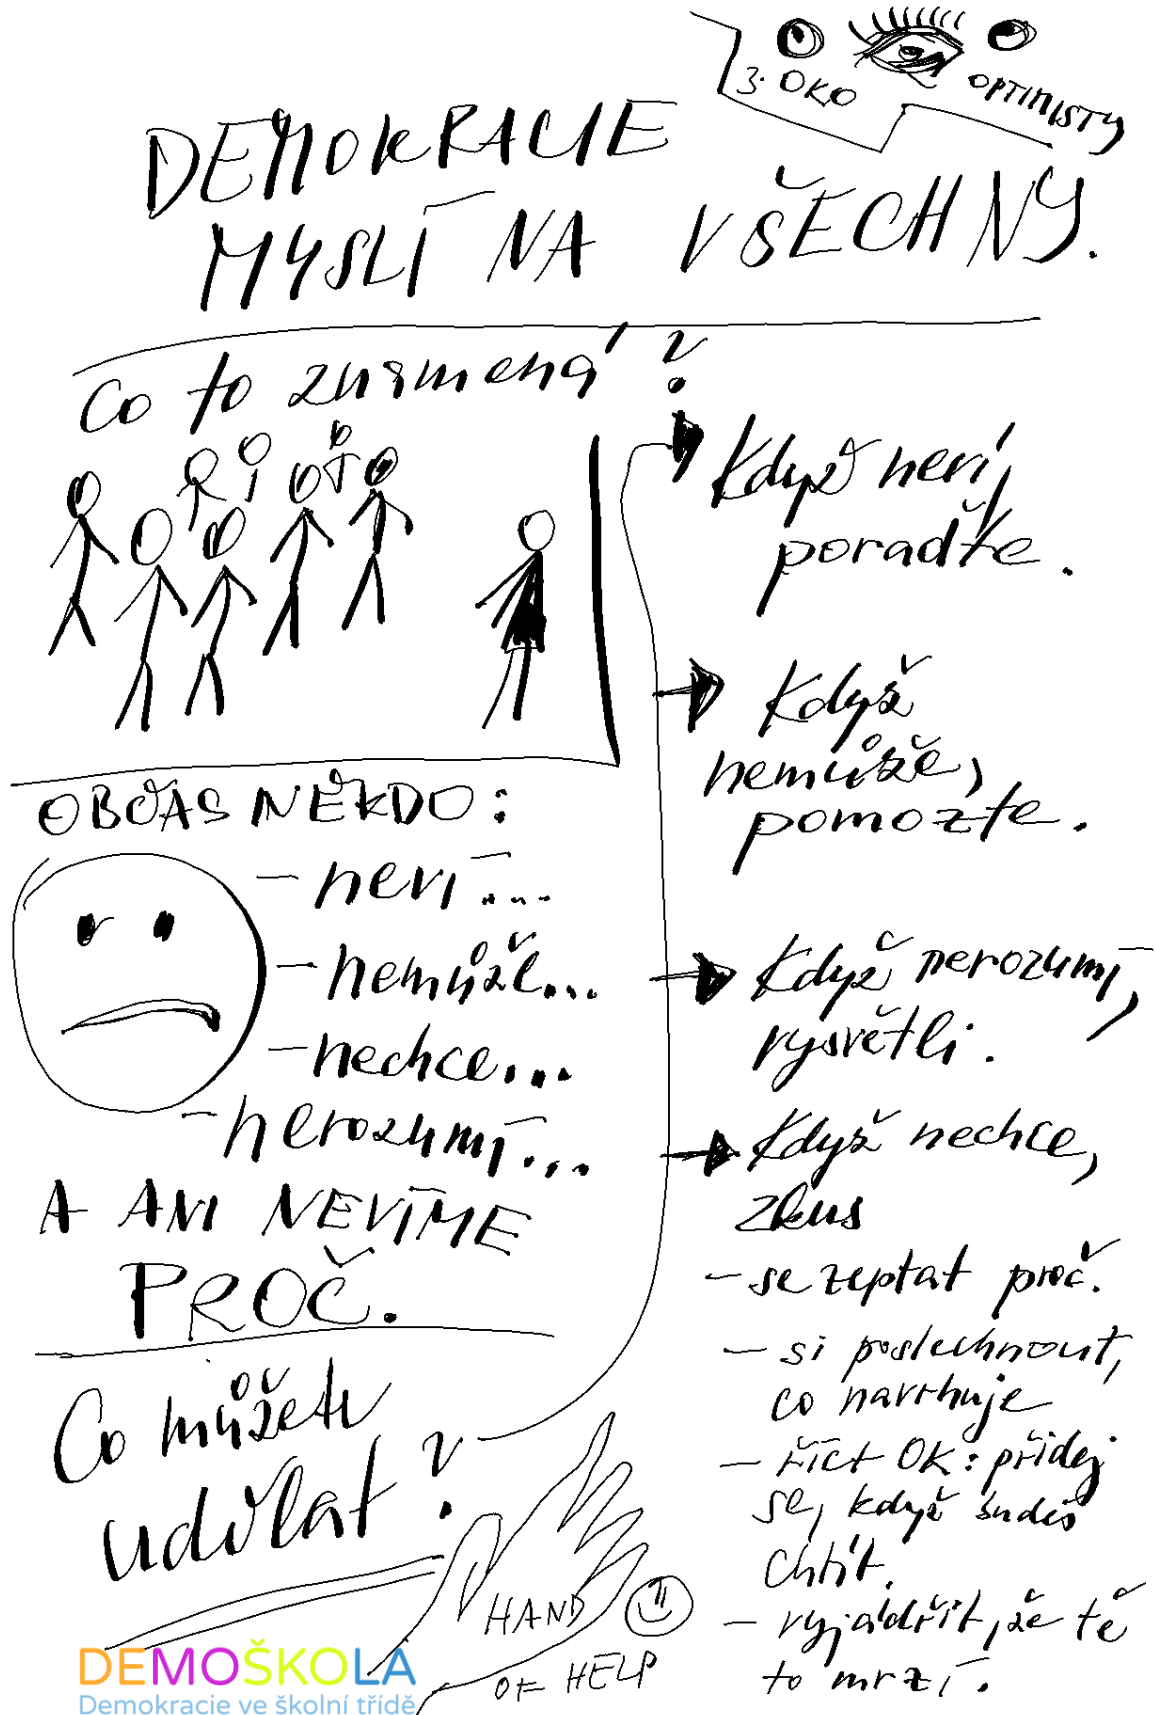 3. OKO OPTIMISTY
DEMOKRACIE
MYSLÍ NA VŠECHNY.
Co to znamená?
OBČAS NĚKDO:
- neví...
- nemůže...
- nechce...
- nerozumí...
A ANI NEVÍME
PROČ.
Co můžete
udělat?
Když neví,
poraďte.
Když
nemůže,
pomozte.
Když nerozumí,
vysvětli.
Když nechce,
zkus
- se zeptat proč.
- si poslechnout,
co navrhuje
- říct OK: přidej
se, když budeš
chtít.
- vyjádřit, že tě
to mrzí.
HAND
OF HELP
DEMOŠKOLA
Demokracie ve školní třídě